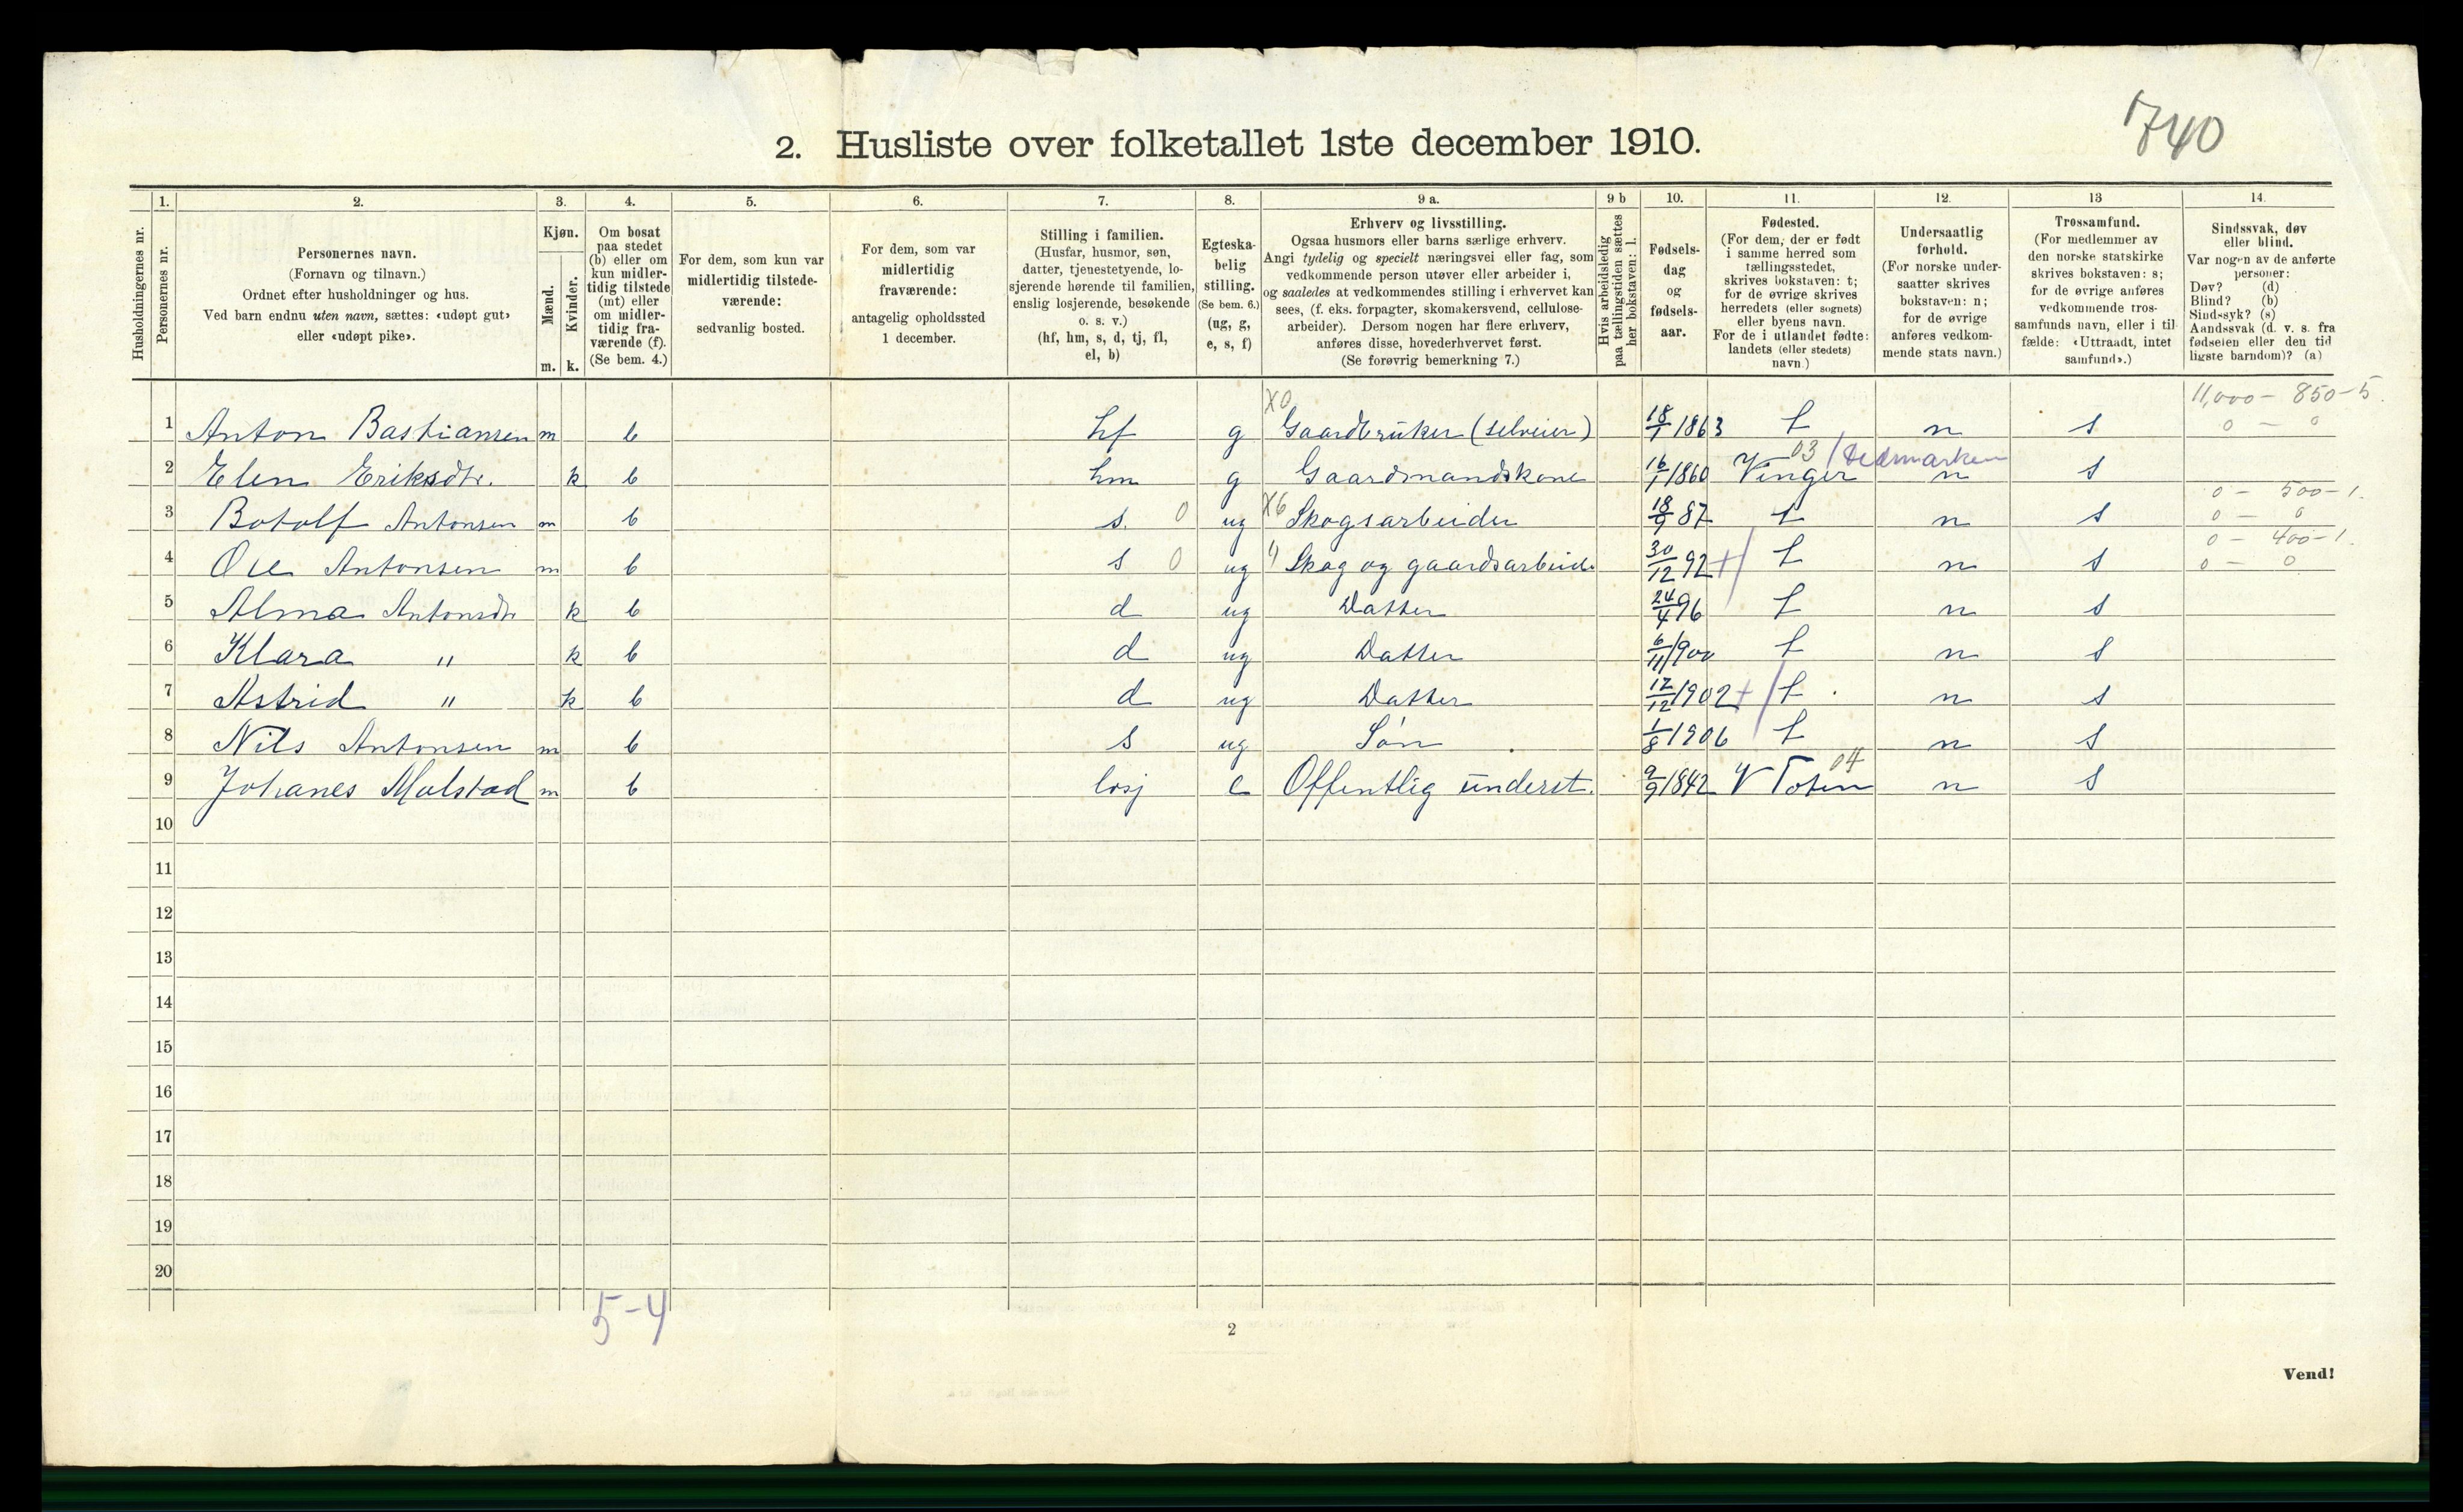 740
2. Husliste over folketallet 1ste december 1910.
Husholdningernes nr.
1.
Personernes nr.
2.
Personernes navn.
(Fornavn og tilnavn.)
Ordnet efter husholdninger og hus.
Ved barn endnu uten navn, sættes: «udøpt gut»
eller «udøpt pike».
3.
Kjøn.
Mænd.
Kvinder.
m. k.
4.
Om bosat
paa stedet
(b) eller om
kun midler-
tidig tilstede
(mt) eller
om midler-
tidig fra-
værende (f).
(Se bem. 4.)
5.
For dem, som kun var
midlertidig tilstede-
værende:
sedvanlig bosted.
6.
For dem, som var
midlertidig
fraværende:
antagelig opholdssted
1 december.
7.
Stilling i familien.
(Husfar, husmor, søn,
datter, tjenestetyende, lo-
sjerende hørende til familien,
enslig losjerende, besøkende
o. s. v.)
(hf, hm, s, d, tj, fl,
el, b)
8.
Egteska-
belig
stilling.
(Se bem. 6.)
(ug, g,
e, s, f)
9 a.
Erhverv og livsstilling.
Ogsaa husmors eller barns særlige erhverv.
Angi tydelig og specielt næringsvei eller fag, som
vedkommende person utøver eller arbeider i,
og saaledes at vedkommendes stilling i erhvervet kan
sees, (f. eks. forpagter, skomakersvend, cellulose-
arbeider). Dersom nogen har flere erhverv,
anføres disse, hovederhvervet først.
(Se forøvrig bemerkning 7.)
9 b
Hvis arbeidsledig
paa tællingstiden sættes
her bokstaven: l.
10.
Fødsels-
dag
og
fødsels-
aar.
11.
Fødested.
(For dem, der er født
i samme herred som
tællingsstedet,
skrives bokstaven: t;
for de øvrige skrives
herredets (eller sognets)
eller byens navn.
For de i utlandet fødte:
landets (eller stedets)
navn.)
12.
Undersaatlig
forhold.
(For norske under-
saatter skrives
bokstaven: n;
for de øvrige
anføres vedkom-
mende stats navn.)
13
Trossamfund.
(For medlemmer av
den norske statskirke
skrives bokstaven: s;
for de øvrige anføres
vedkommende tros-
samfunds navn, eller i til-
fælde: «Uttraadt, intet
samfund».)
14.
Sindssvak, døv
eller blind.
Var nogen av de anførte
personer:
Døv? (d)
Blind? (b)
Sindssyk? (s)
Aandssvak (d. v. s. fra
fødselen eller den tid
ligste barndom)? (a)
X0 11,000 - 850-5.
1 Anton Bastiansen m b hf g Gaardbruker (selveier) 18/1 1863 t n s 0 - 0
03 / Hedmarken
2 Elen Eriksdtr. k b hm g Gaardmandskone 16/1 1860 Vinger n s
0 - 500-1.
3 Botolf Antonsen m b s. 0 ug X6 Skogsarbeider 18/9 87 t n s 0 - 0
0 - 400-1.
4 Ole Antonsen m b s 0 ug " Skog og gaardsarbeide 30/12 92 + / t n s 0 - 0
5 Alma Antonsdtr k b d ug Datter 24/4 96 t n s
6 Klara " k b d ug Datter 6/11 1900 t n s
7 Astrid " k b d ug Datter 17/12 1902 + / t n s
8 Nils Antonsen m b s ug Søn 1/8 1906 t n s
04
9 Johanes Mulstad m b losj e Offentlig underst. 9/9 1842 V Toten n s
10
11
12
13
14
15
16
17
18
19
20
5-4
2
Vend!